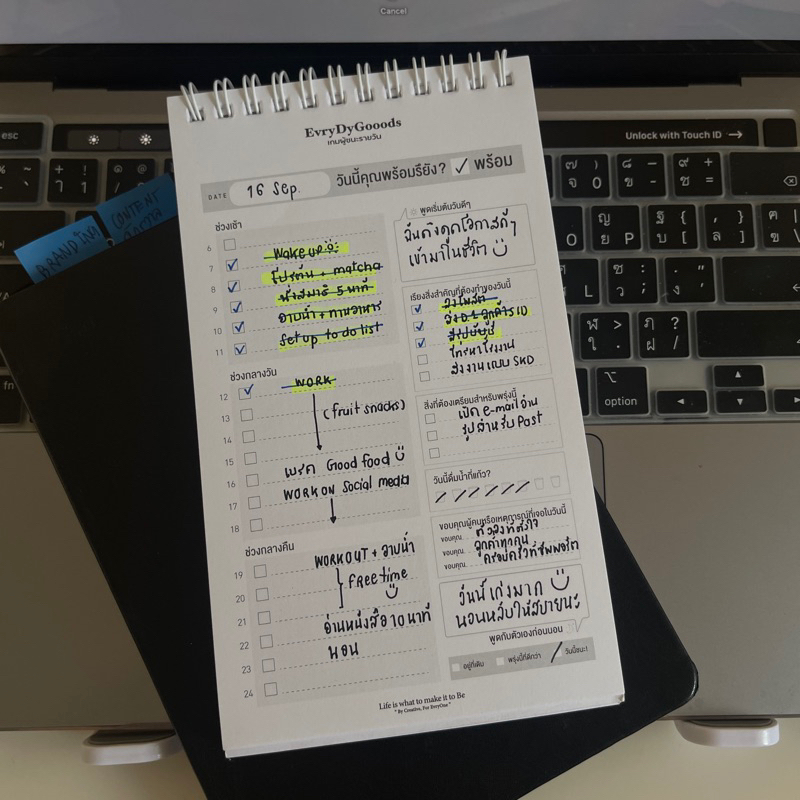 Cancel
esc
Unlock with Touch ID →
EvryDyGooods
เกมผู้ชนะรายวัน
DATE 16 Sep. วันนี้คุณพร้อมรึยัง? ✓ พร้อม
BRANDING
CONTENT
ช่วงเช้า
6
Wake up
7
โปรตีน + matcha
8
นั่งสมาธิ 5 นาที
9
อาบน้ำ + ทานอาหาร
10
set up to do list
11
ช่วงกลางวัน
12 WORK
13 (fruit snacks)
14
15
เบรค Good food
16
WORK ON Social media
17
18
ช่วงกลางคืน
WORKOUT + อาบน้ำ
19
free time
20
21
อ่านหนังสือ 10 นาที
22
นอน
23
24
พูดเริ่มต้นวันดีๆ
ฉันดึงดูดโอกาสดีๆ
เข้ามาในชีวิต
เรียงสิ่งสำคัญที่ต้องทำของวันนี้
ลงโพสต์
สรุปบัญชี
โทรหาโรงงาน
ส่งงานแบบ SKD
สิ่งที่ต้องเตรียมสำหรับพรุ่งนี้
เปิด e-mail อ่าน
รูปสำหรับ Post
วันนี้ดื่มน้ำกี่แก้ว?
ขอบคุณผู้คนหรือเหตุการณ์ที่เจอในวันนี้
ขอบคุณ ตัวเองที่ตั้งใจ
ขอบคุณ ลูกค้าทุกคน
ขอบคุณ ครอบครัวที่ซัพพอร์ต
วันนี้เก่งมาก
นอนหลับให้สบายนะ
พูดกับตัวเองก่อนนอน
อยู่ที่เดิม พรุ่งนี้ดีกว่า วันนี้ชนะ!
Life is what to make it to Be
" By Creative, For EveryOne "
fn
option